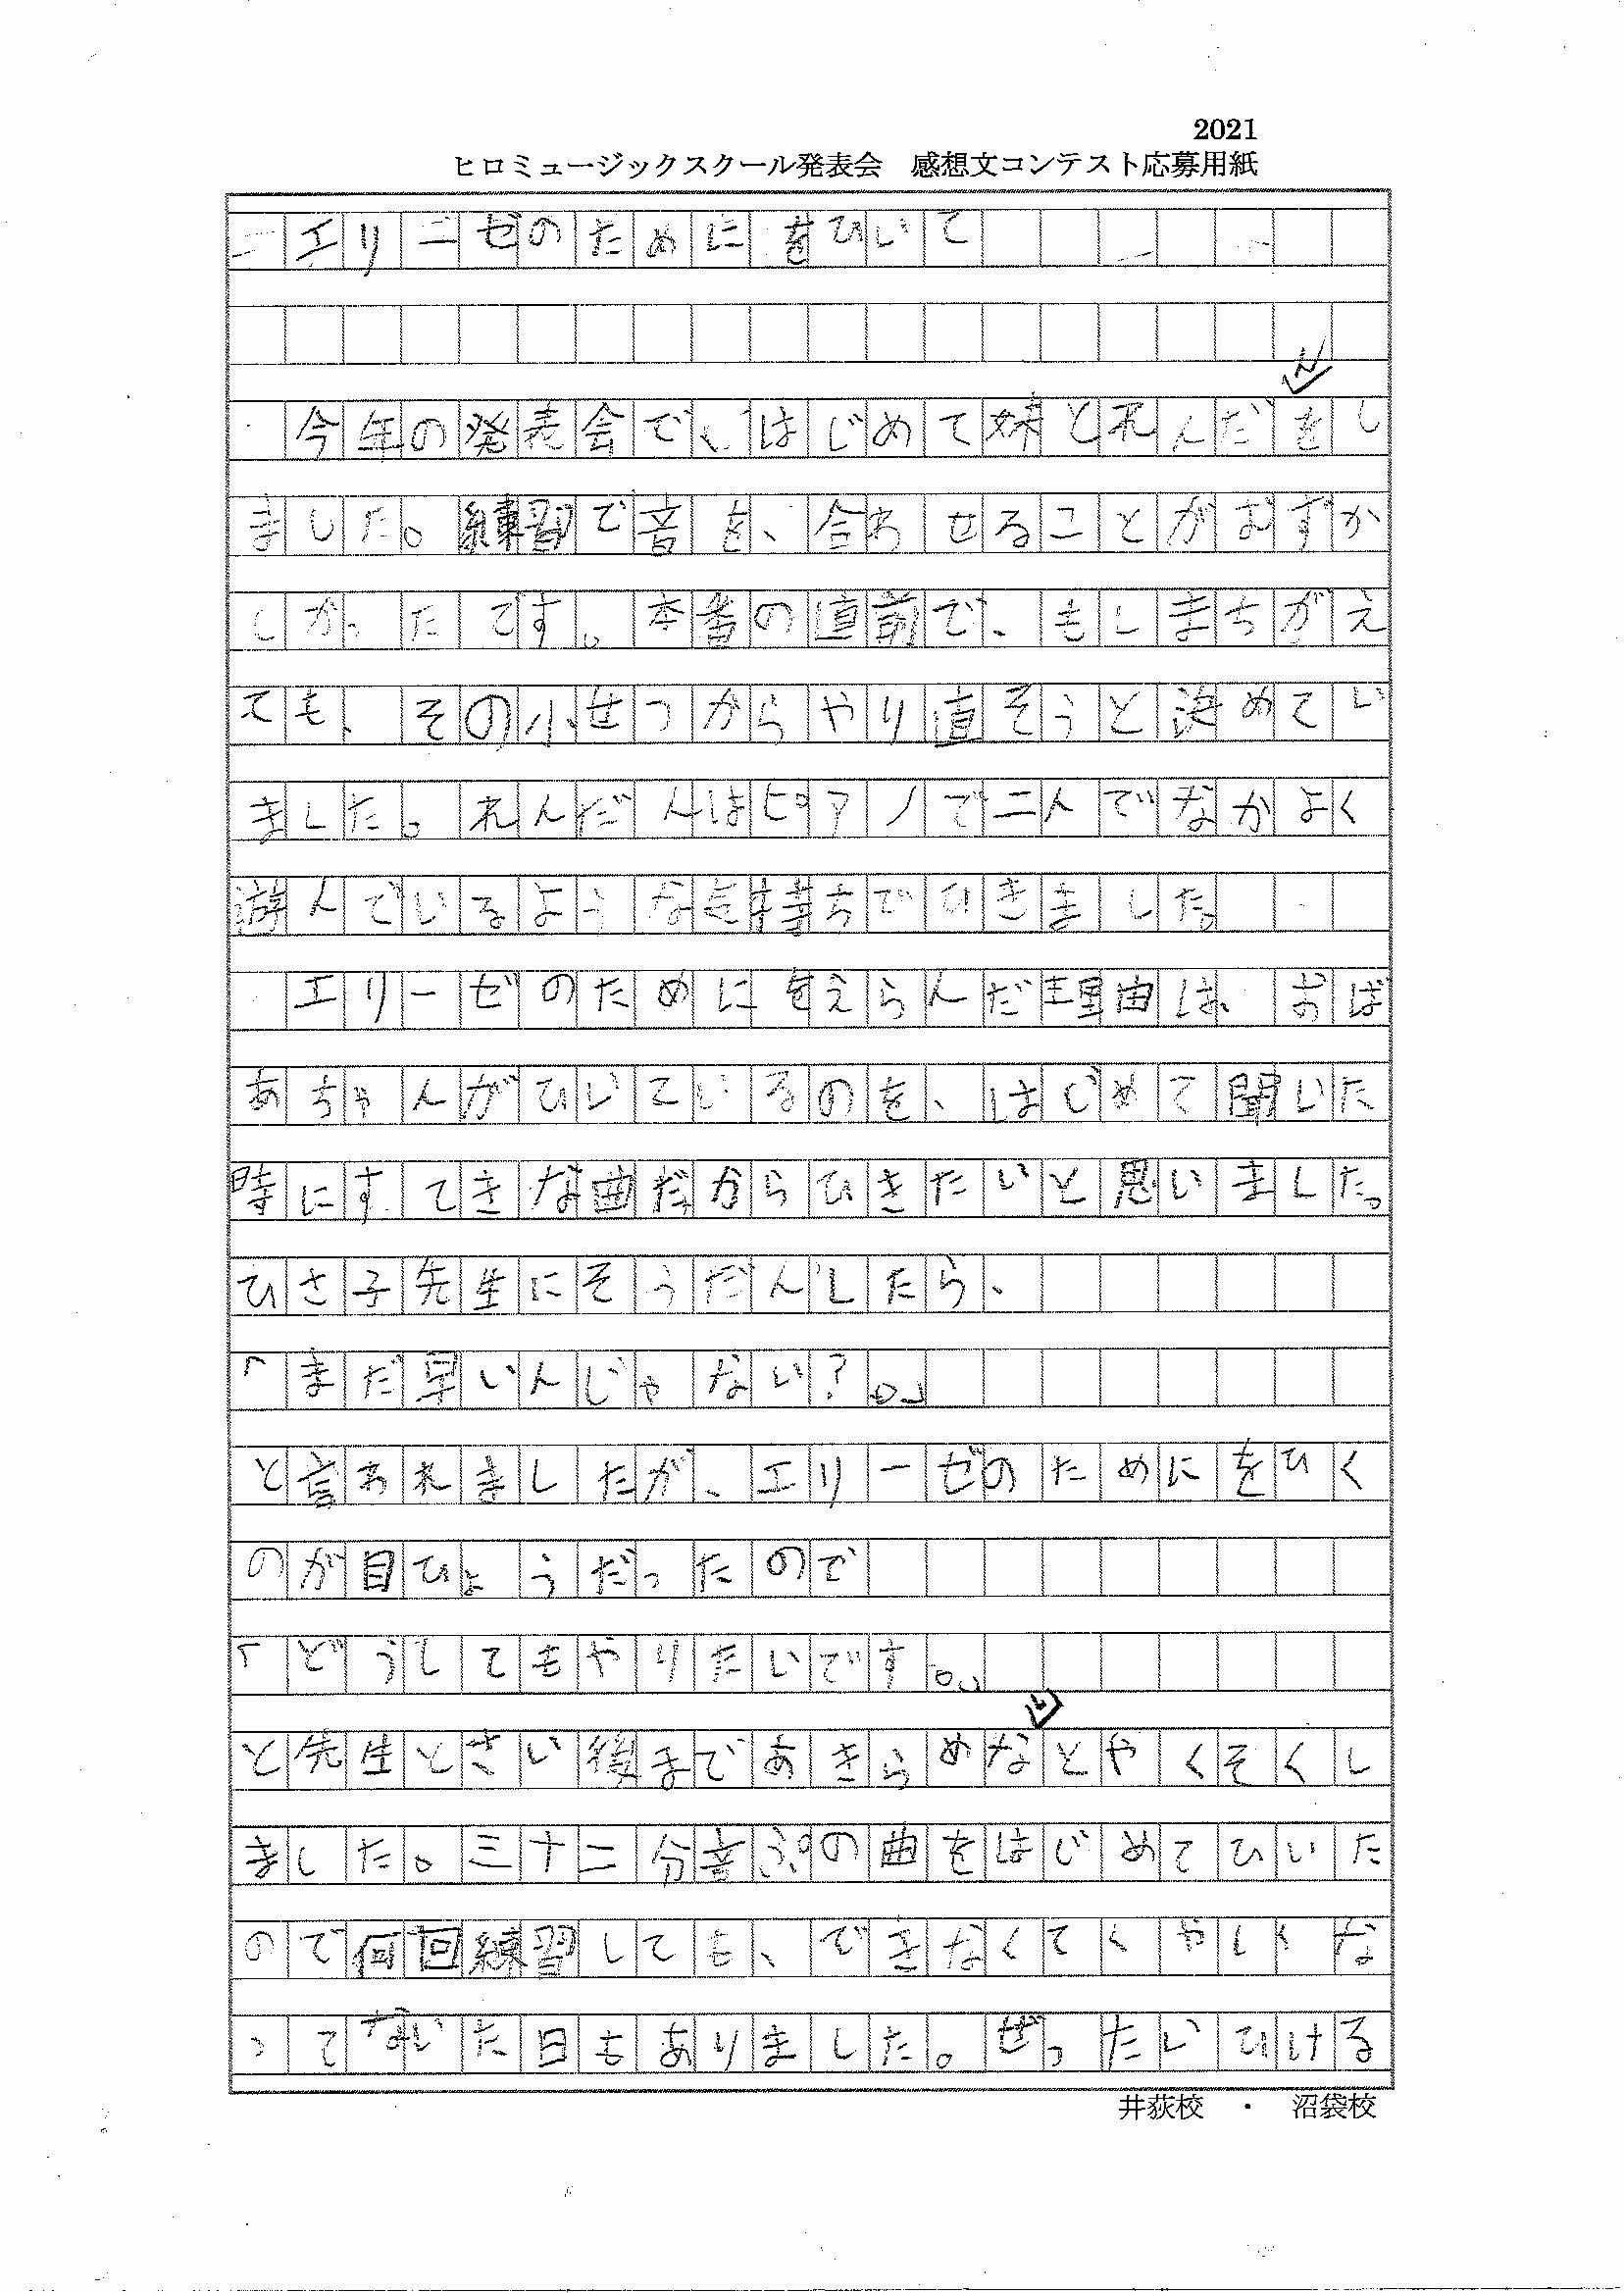 2021
ヒロミュージックスクール発表会　感想文コンテスト応募用紙
エリーゼのためにをひいて
ん
今年の発表会で、はじめて妹とれんだをし
ました。練習で音を、合わせることがおずか
しかったです。本番の直前で、もしまちがえ
ても、その小せつからやり直そうと決めてい
ました。れんだんはピアノで二人でなかよく
遊んでいるような気持ちでひきました。
エリーゼのためにをえらんだ理由は、おば
あちゃんがひいているのを、はじめて聞いた
時にすてきな曲だからひきたいと思いました。
ひさ子先生にそうだんしたら、
「まだ早いんじゃない？。」
と言われましたが、エリーゼのためにをひく
のが目ひょうだったので
「どうしてもやりたいです。」
い
と先生とさい後まであきらめなとやくそくし
ました。三十二分音ぷの曲をはじめてひいた
ので何回練習しても、できなくてくやしくな
ってないた日もありました。ぜったいひける
井荻校　・　沼袋校